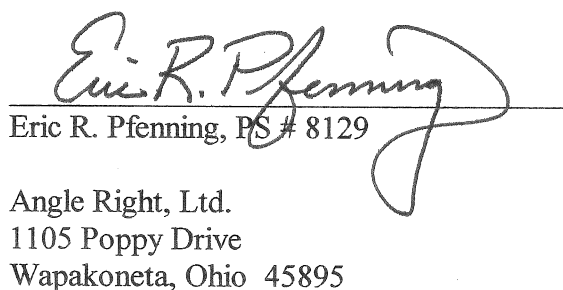 Eric R. Pfenning
Eric R. Pfenning, PS # 8129
Angle Right, Ltd.
1105 Poppy Drive
Wapakoneta, Ohio 45895